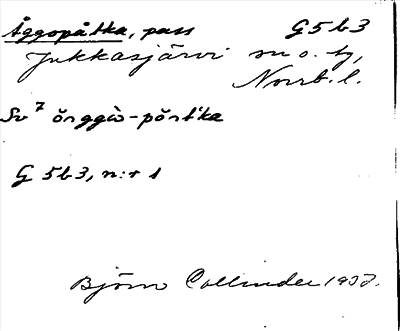 Åggopåtka, pass G5b3
Jukkasjärvi sn o. tg,
Norrb. l.
Sv⁷ ŏrggɔ̀-pŏrt'ka
G 5b3, n:r 1
Björn Collinder 1937.